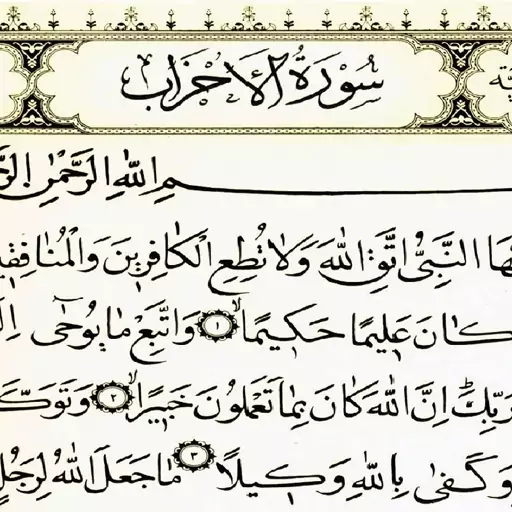 سُورَةُ الْأَحْزَابِ
مِ اللهِ الرَّحْمٰنِ
النَّبِيُّ اتَّقِ اللهَ وَلَا تُطِعِ الْكَافِرِينَ وَالْمُنَافِقِ
كَانَ عَلِيمًا حَكِيمًا ۙ ١ وَاتَّبِعْ مَا يُوحٰٓى
رَبِّكَ ۜ اِنَّ اللهَ كَانَ بِمَا تَعْمَلُونَ خَبِيرًا ۙ ٢ وَتَوَكَّ
وَكَفٰى بِاللهِ وَكِيلًا ٣ مَا جَعَلَ اللهُ لِرَجُلٍ